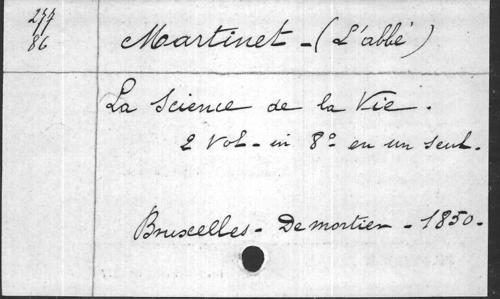 277
86
Martinet - (L'abbé)
La Science de la Vie.
2 Vol - in 8º en un seul.
Bruxelles - Demortier - 1850 -